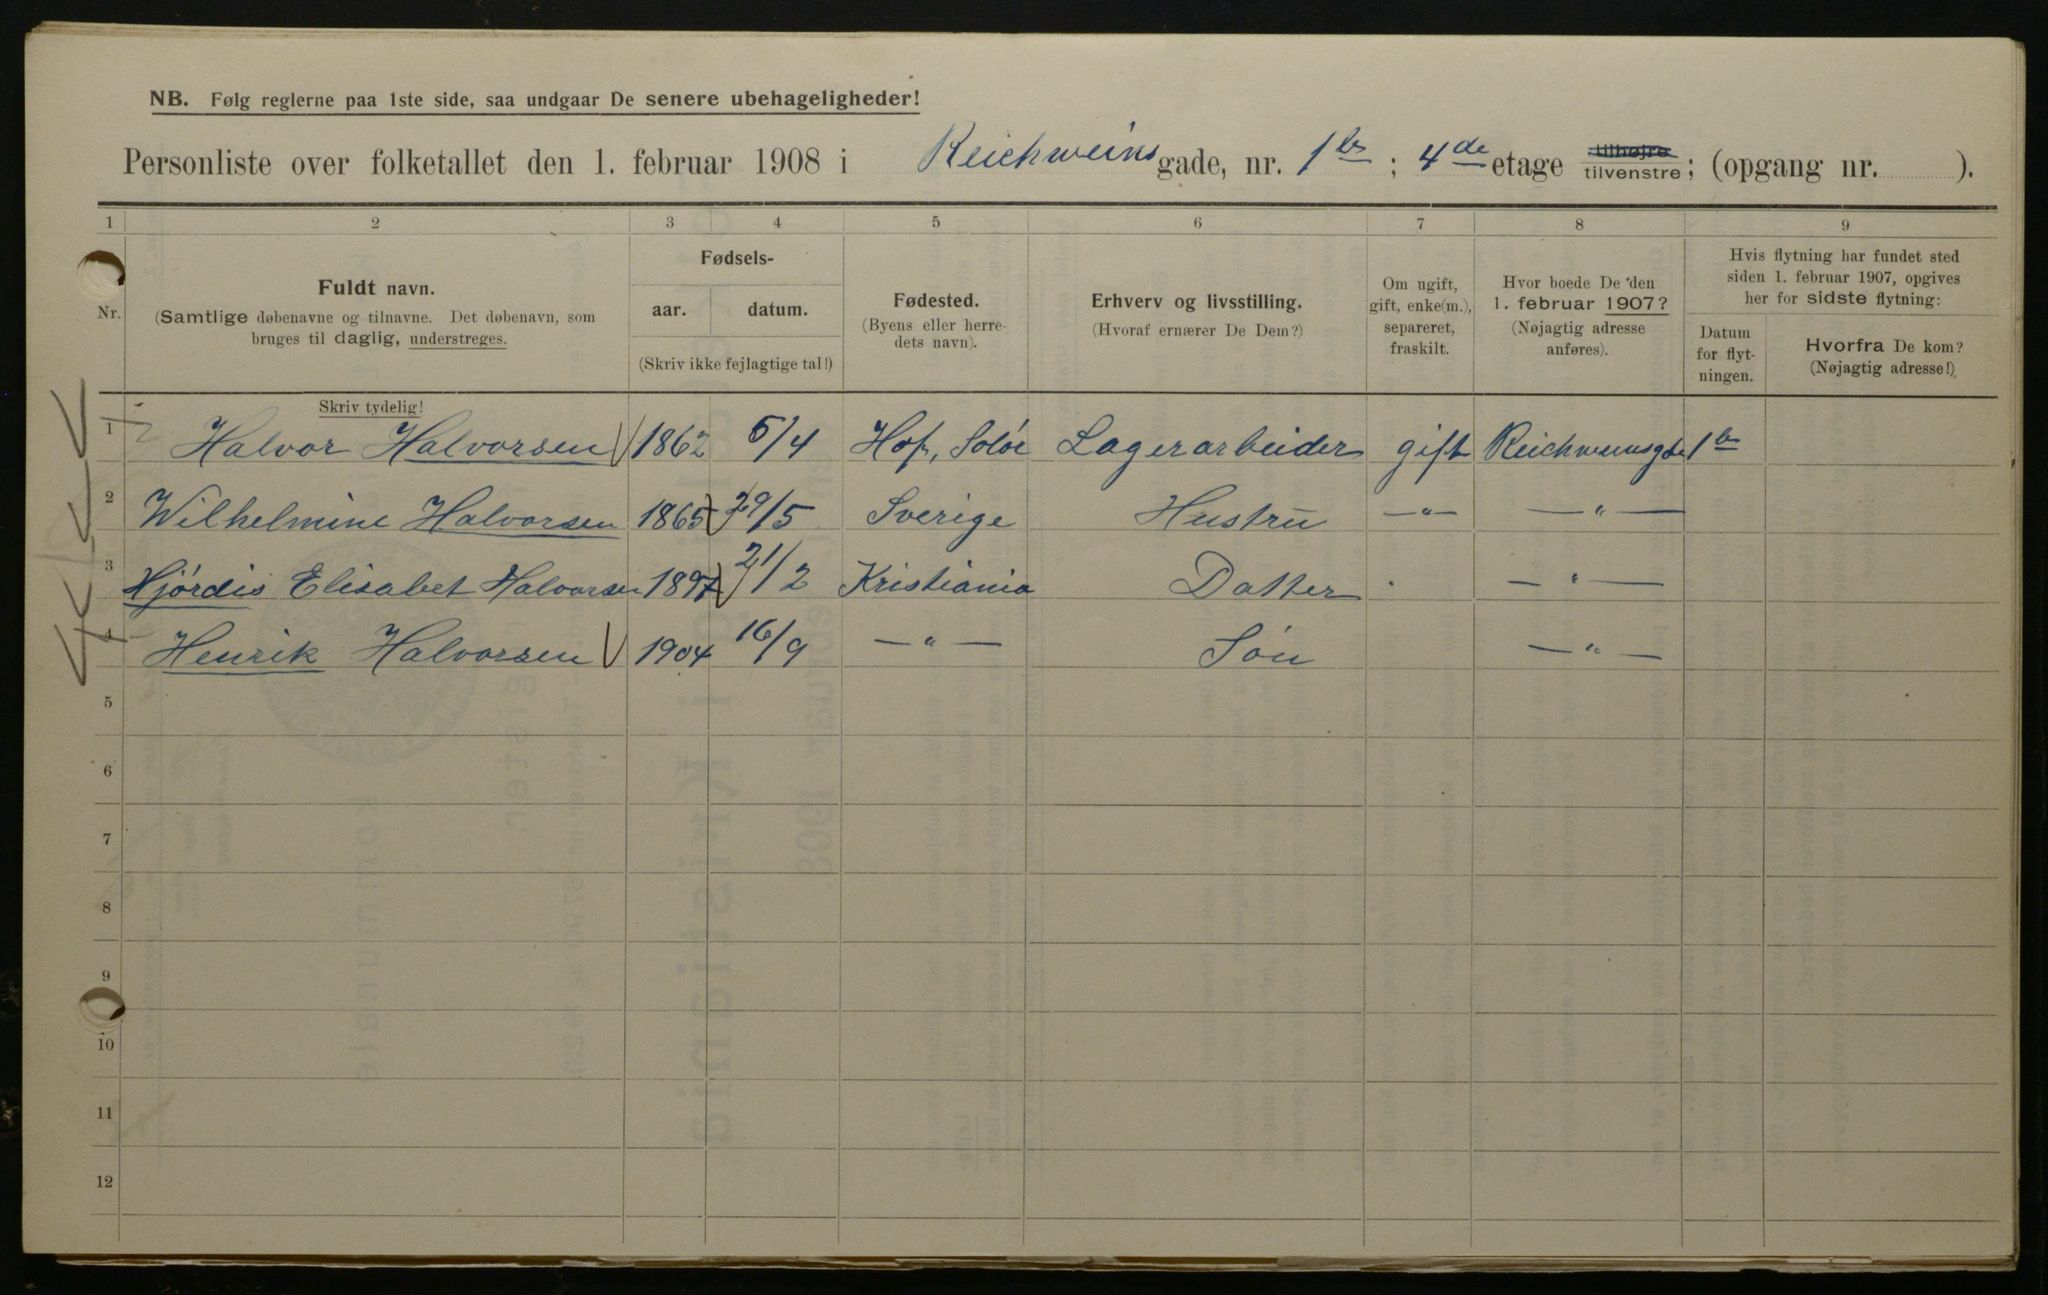 NB. Følg reglerne paa 1ste side, saa undgaar De senere ubehageligheder!
Personliste over folketallet den 1. februar 1908 i Reichweins gade, nr. 1 b; 4de etage tilhøjre tilvenstre; (opgang nr. ).
1 2 3 4 5 6 7 8 9
Nr.
Fuldt navn.
(Samtlige døbenavne og tilnavne. Det døbenavn, som
bruges til daglig, understreges.
Skriv tydelig!
Fødsels-
aar. datum.
(Skriv ikke fejlagtige tal!)
Fødested.
(Byens eller herre-
dets navn).
Erhverv og livsstilling.
(Hvoraf ernærer De Dem?)
Om ugift,
gift, enke(m.),
separeret,
fraskilt.
Hvor boede De den
1. februar 1907?
(Nøjagtig adresse
anføres).
Hvis flytning har fundet sted
siden 1. februar 1907, opgives
her for sidste flytning:
Datum
for flyt-
ningen.
Hvorfra De kom?
(Nøjagtig adresse!)
1 Halvor Halvorsen 1862 5/4 Hof, Solør Lagerarbeider gift Reichweinsgde 1 b
2 Wilhelmine Halvorsen 1865 29/5 Sverige Hustru —"— —"—
3 Hjørdis Elisabet Halvorsen 1897 21/2 Kristiania Datter —"—
4 Henrik Halvorsen 1904 16/9 —"— Søn —"—
5
6
7
8
9
10
11
12